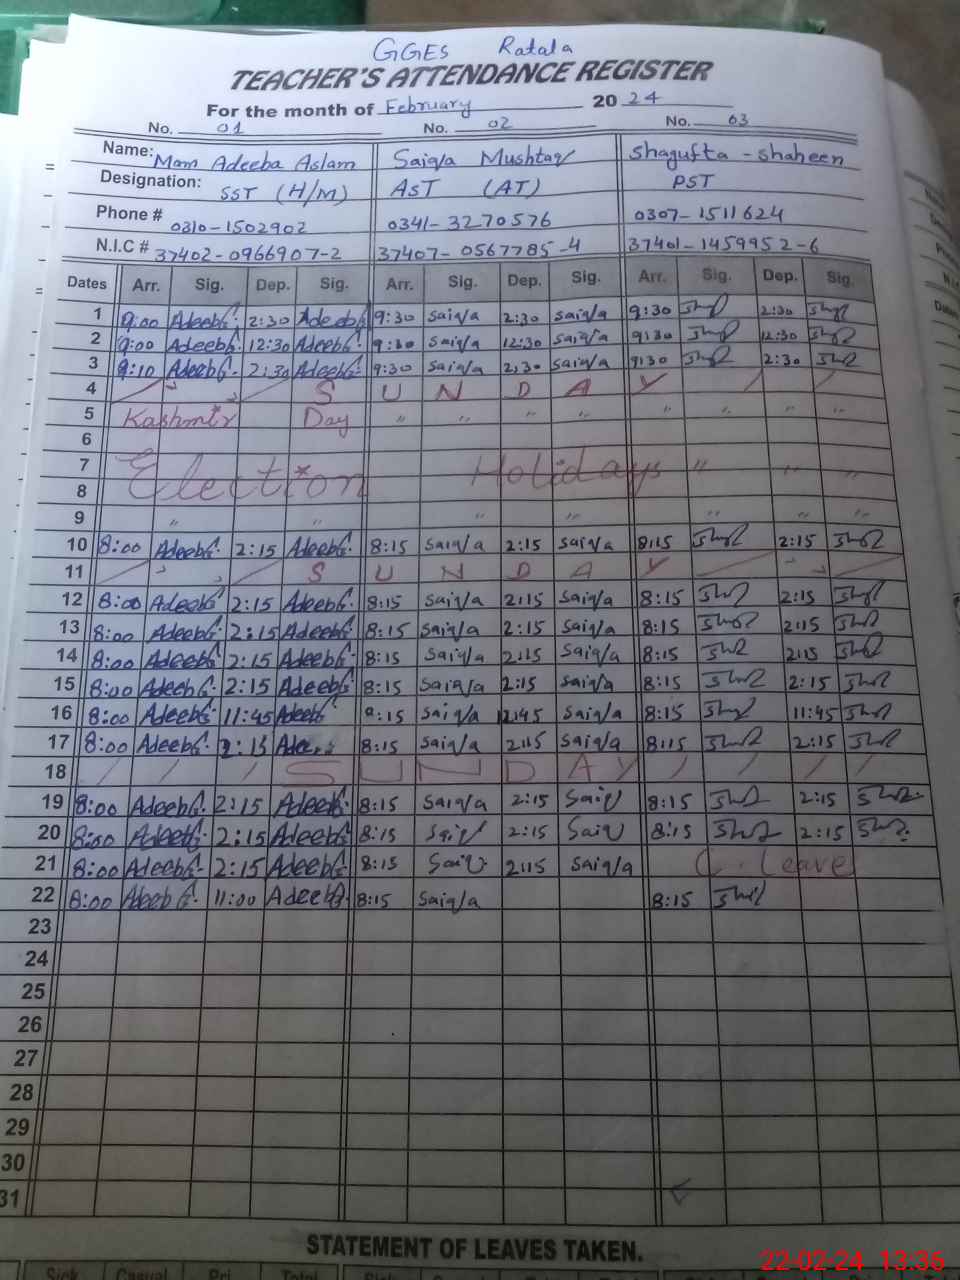 GGES Ratala
TEACHER'S ATTENDANCE REGISTER
For the month of February 2024
No. 01 No. 02 No. 03
Name: Mam Adeeba Aslam Saiqa Mushtaq Shagufta - Shaheen
Designation: SST (H/M) AST (AT) PST
Phone # 0310-1502902 0341-3270576 0307-1511624
N.I.C # 37402-0966907-2 37407-0567785-4 37401-1459952-6
Dates Arr. Sig. Dep. Sig. Arr. Sig. Dep. Sig. Arr. Sig. Dep. Sig.
1 9:00 Adeeba 2:30 Adeeba 9:30 Saiqa 2:30 Saiqa 9:30 2:30
2 9:00 Adeeba 12:30 Adeeba 9:30 Saiqa 12:30 Saiqa 9:30 12:30
3 9:10 Adeeba 2:30 Adeeba 9:30 Saiqa 2:30 Saiqa 9:30 2:30
4 S U N D A Y
5 Kashmir Day " " " " " " " "
6
7 Election Holidays " " "
8
9 " " " " " " "
10 8:00 Adeeba 2:15 Adeeba 8:15 Saiqa 2:15 Saiqa 8:15 2:15
11 S U N D A Y
12 8:00 Adeeba 2:15 Adeeba 8:15 Saiqa 2:15 Saiqa 8:15 2:15
13 8:00 Adeeba 2:15 Adeeba 8:15 Saiqa 2:15 Saiqa 8:15 2:15
14 8:00 Adeeba 2:15 Adeeba 8:15 Saiqa 2:15 Saiqa 8:15 2:15
15 8:00 Adeeba 2:15 Adeeba 8:15 Saiqa 2:15 Saiqa 8:15 2:15
16 8:00 Adeeba 11:45 Adeeba 8:15 Saiqa 12:45 Saiqa 8:15 11:45
17 8:00 Adeeba 2:15 8:15 Saiqa 2:15 Saiqa 8:15 2:15
18 S U N D A Y
19 8:00 Adeeba 2:15 Adeeba 8:15 Saiqa 2:15 Saiq 8:15 2:15
20 8:00 Adeeba 2:15 Adeeba 8:15 Saiq 2:15 Saiq 8:15 2:15
21 8:00 Adeeba 2:15 Adeeba 8:15 Saiq 2:15 Saiqa C. Leave
22 8:00 Adeeba 11:00 Adeeba 8:15 Saiqa 8:15
23
24
25
26
27
28
29
30
31
STATEMENT OF LEAVES TAKEN.
Sick Casual Pri. Total
22-02-24 13:36